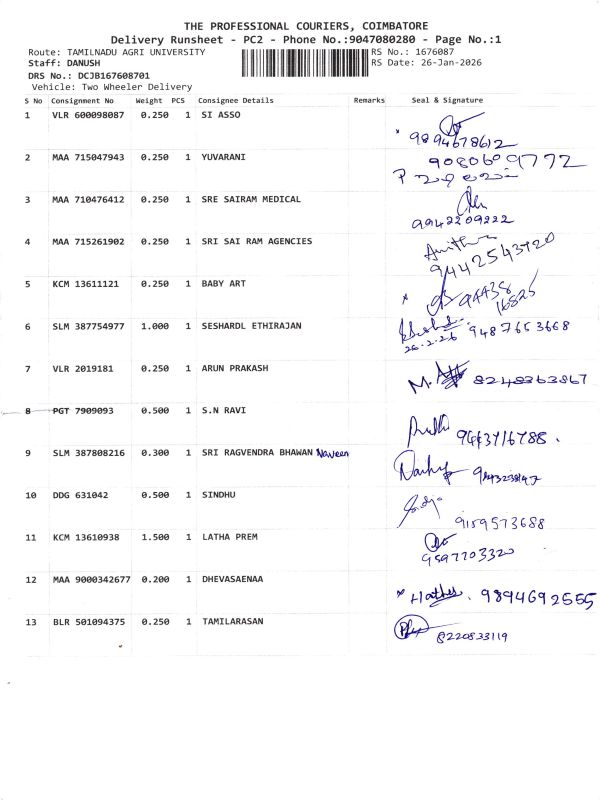 THE PROFESSIONAL COURIERS, COIMBATORE
Delivery Runsheet - PC2 - Phone No.:9047080280 - Page No.:1
Route: TAMILNADU AGRI UNIVERSITY RS No.: 1676087
Staff: DANUSH RS Date: 26-Jan-2026
DRS No.: DCJB167608701
Vehicle: Two Wheeler Delivery
S No Consignment No Weight PCS Consignee Details Remarks Seal & Signature
1 VLR 600098087 0.250 1 SI ASSO
9894678612
2 MAA 715047943 0.250 1 YUVARANI 9080609772
3 MAA 710476412 0.250 1 SRE SAIRAM MEDICAL
9942209222
4 MAA 715261902 0.250 1 SRI SAI RAM AGENCIES
9442543720
5 KCM 13611121 0.250 1 BABY ART 94438
16825
6 SLM 387754977 1.000 1 SESHARDL ETHIRAJAN 9487653668
26.2.26
7 VLR 2019181 0.250 1 ARUN PRAKASH M. 8248363867
8 PGT 7909093 0.500 1 S.N RAVI
9443716788.
9 SLM 387808216 0.300 1 SRI RAGVENDRA BHAWAN Naveen
10 DDG 631042 0.500 1 SINDHU
9159573688
11 KCM 13610938 1.500 1 LATHA PREM
9597703320
12 MAA 9000342677 0.200 1 DHEVASAENAA
9894692555
13 BLR 501094375 0.250 1 TAMILARASAN
8220833119